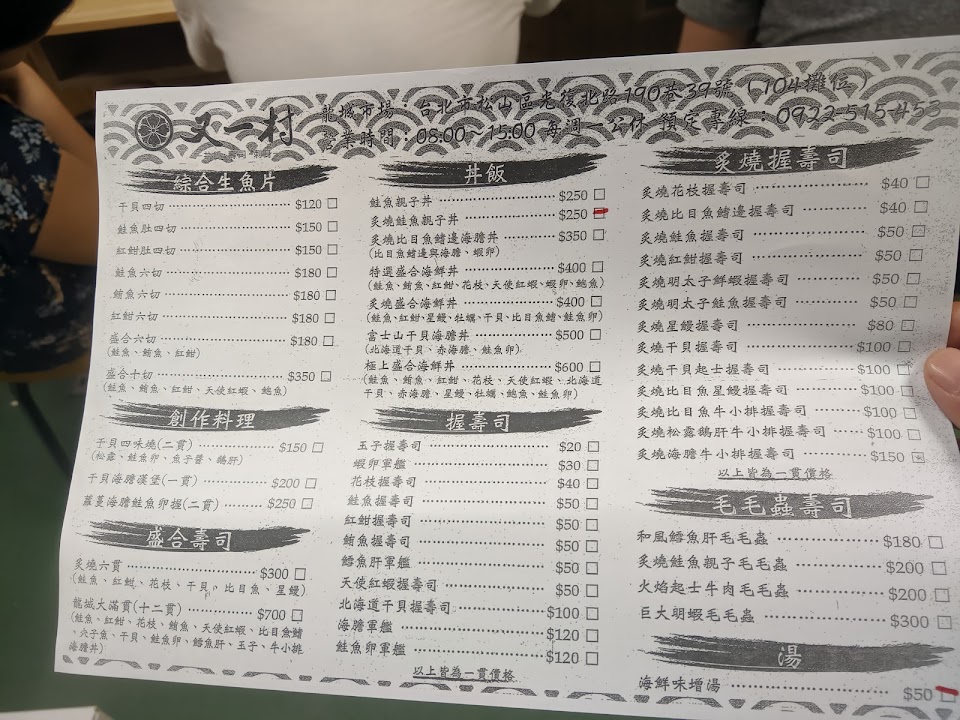 又一村
龍城市場：台北市松山區光復北路190巷39號（104攤位）
營業時間：08:00~15:00 每週一公休 預定專線：0922-515-453
綜合生魚片
干貝四切 $120
鮭魚肚四切 $150
紅魽肚四切 $150
鮭魚六切 $180
鮪魚六切 $180
紅魽六切 $180
盛合六切 $180
(鮭魚、鮪魚、紅魽)
盛合十切 $350
(鮭魚、鮪魚、紅魽、天使紅蝦、鮑魚)
創作料理
干貝四味燒(二貫) $150
(松露、鮭魚卵、魚子醬、鵝肝)
干貝海膽漢堡(一貫) $200
蘿蔓海膽鮭魚卵握(二貫) $250
盛合壽司
炙燒六貫 $300
(鮭魚、紅魽、花枝、干貝、比目魚、星鰻)
龍城大滿貫(十二貫) $700
(鮭魚、紅魽、花枝、鮪魚、天使紅蝦、比目魚鰭
、穴子魚、干貝、鮭魚卵、鱈魚肝、玉子、牛小排
海膽丼)
丼飯
鮭魚親子丼 $250
炙燒鮭魚親子丼 $250
炙燒比目魚鰭邊海膽丼 $350
(比目魚鰭邊與海膽、蝦卵)
特選盛合海鮮丼 $400
(鮭魚、鮪魚、紅魽、花枝、天使紅蝦、蝦卵、鮑魚)
炙燒盛合海鮮丼 $400
(鮭魚、紅魽、星鰻、牡蠣、干貝、比目魚鰭、鮭魚卵)
富士山干貝海膽丼 $500
(北海道干貝、赤海膽、鮭魚卵)
極上盛合海鮮丼 $600
(鮭魚、鮪魚、紅魽、花枝、天使紅蝦、北海道
干貝、赤海膽、星鰻、牡蠣、鮑魚、鮭魚卵)
握壽司
玉子握壽司 $20
蝦卵軍艦 $30
花枝握壽司 $40
鮭魚握壽司 $50
紅魽握壽司 $50
鮪魚握壽司 $50
鱈魚肝軍艦 $50
天使紅蝦握壽司 $50
北海道干貝握壽司 $100
海膽軍艦 $120
鮭魚卵軍艦 $120
以上皆為一貫價格
炙燒握壽司
炙燒花枝握壽司 $40
炙燒比目魚鰭邊握壽司 $40
炙燒鮭魚握壽司 $50
炙燒紅魽握壽司 $50
炙燒明太子鮮蝦握壽司 $50
炙燒明太子鮭魚握壽司 $50
炙燒星鰻握壽司 $80
炙燒干貝握壽司 $100
炙燒干貝起士握壽司 $100
炙燒比目魚星鰻握壽司 $100
炙燒比目魚牛小排握壽司 $100
炙燒松露鵝肝牛小排握壽司 $100
炙燒海膽牛小排握壽司 $150
以上皆為一貫價格
毛毛蟲壽司
和風鱈魚肝毛毛蟲 $180
炙燒鮭魚親子毛毛蟲 $200
火焰起士牛肉毛毛蟲 $200
巨大明蝦毛毛蟲 $300
湯
海鮮味增湯 $50